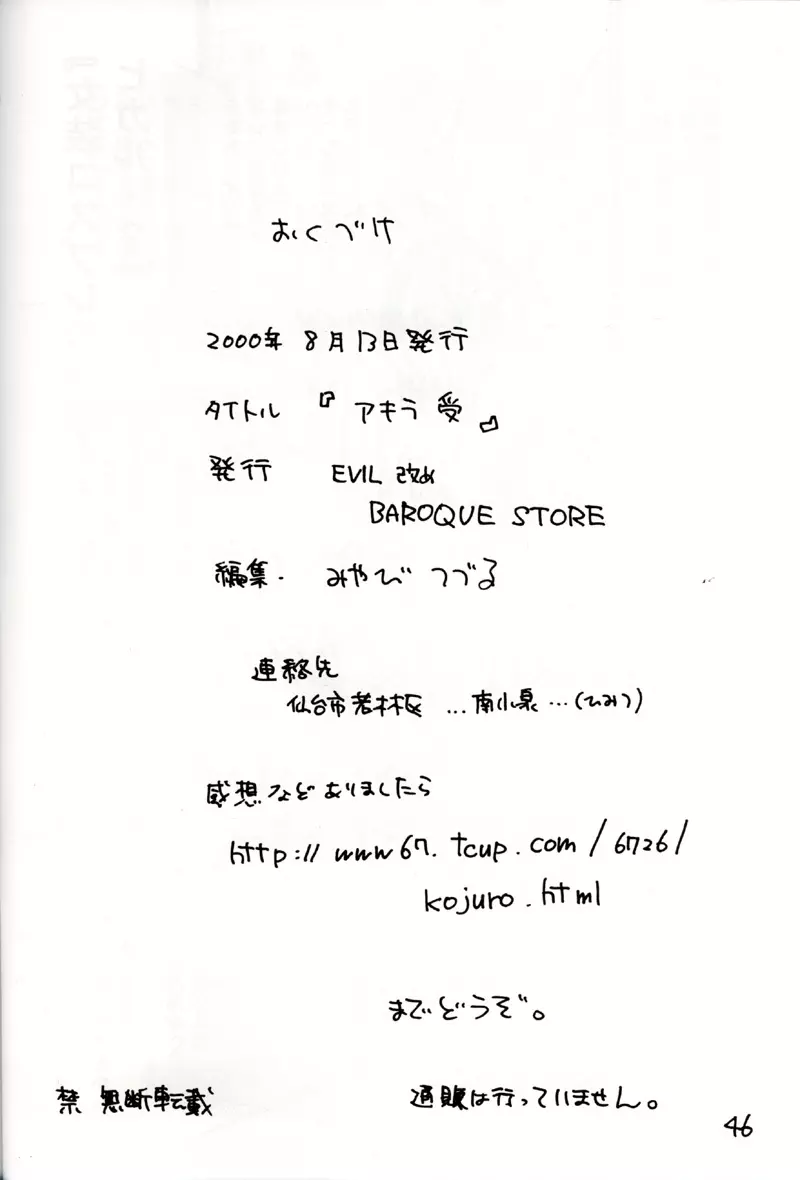 おくづけ
2000年 8月13日発行
タイトル 『アキラ 受』
発行 EVIL 改め
BAROQUE STORE
編集. みやび つづる
連絡先
仙台市若林区 ...南小泉...(ひみつ)
感想などありましたら
http://www67.tcup.com/6726/
kojuro.html
までどうぞ。
禁 無断転載
通販は行っていません。
46